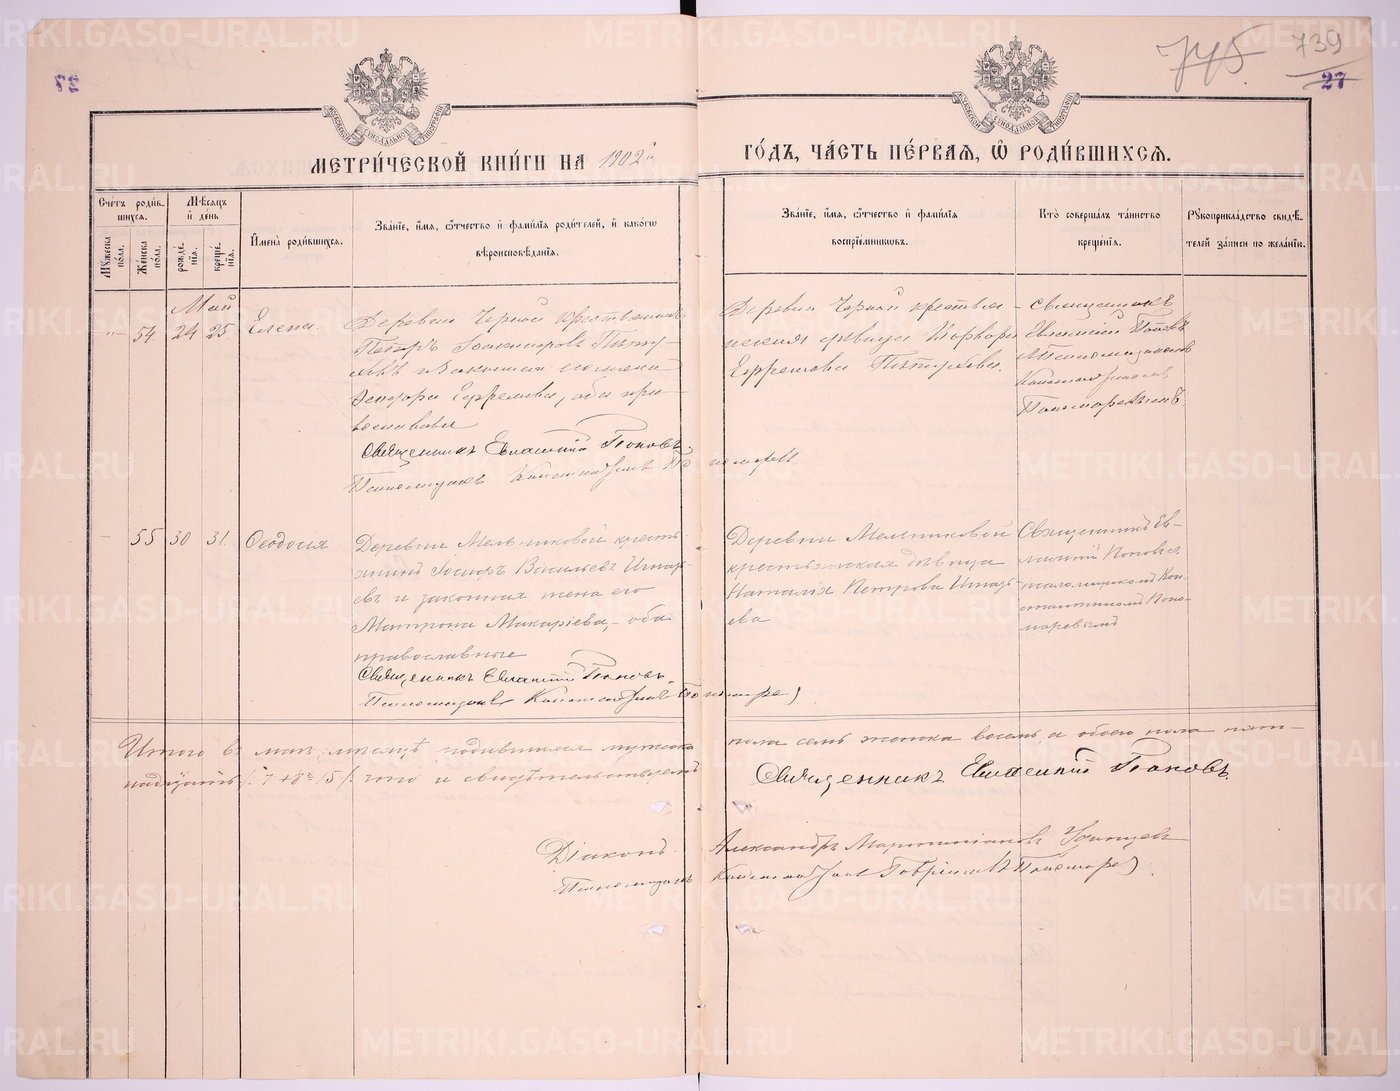 745 739
27
МЕТРИ́ЧЕСКОЙ КНИ́ГИ НА 1902й ГО́ДЪ, ЧА́СТЬ ПЕ́РВАЯ, Ѿ РОДИ́ВШИХСЯ.
Сче́тъ роди́вшихся.
Му́жеска по́ла.
Же́нска по́ла.
Мѣ́сяцъ и҆ де́нь
рожде́нїя.
креще́нїя.
И҆мена̀ роди́вшихся.
Зва́нїе, и҆́мя, ѻ҆́тчество и҆ фами́лїя роди́телей, и҆ како́гѡ вѣроисповѣ́данїя.
Зва́нїе, и҆́мя, ѻ҆́тчество и҆ фами́лїя воспрїе́мниковъ.
Кто̀ соверша́лъ та́инство креще́нїя.
Рукоприкла́дство свидѣ́телей за́писи по жела́нїю.
Май
54. 24 25. Елена.
Деревни Черной крестьянинъ
Петръ Пѣту-
ховъ и законная жена его
Ѳеодора Ефремова, оба пра-
вославные
Священникъ Евлампій Поповъ.
Псаломщикъ Константинъ Пономаревъ
Деревни Черной крестьян-
ская дѣвица Варвара
Ефремова Пѣтухова.
Священникъ
Евлампій Поповъ
Псаломщикомъ
Константиномъ
Пономаревымъ
55 30 31. Ѳеодосія
Деревни Мельниковой кресть-
янинъ Васильевъ Игнать-
евъ и законная жена его
Матрона Макаріева, оба
православные
Священникъ Евлампій Поповъ.
Псаломщикъ Константинъ Пономаре)
Деревни Мельниковой
крестьянская дѣвица
Наталія Петрова Игнать-
ева
Священникъ Ев-
лампій Поповъ съ
псаломщикомъ Кон-
стантиномъ Поно-
маревымъ
Итого въ маѣ мѣсяцѣ родившихся мужска пола семь женска восемь а обоего пола пят-
надцать 7+8=15/ что и свидѣтельствуемъ
Священникъ Евлампій Поповъ.
Діаконъ Александръ
Псаломщикъ Пономаре)
METRIKI.GASO-URAL.RU